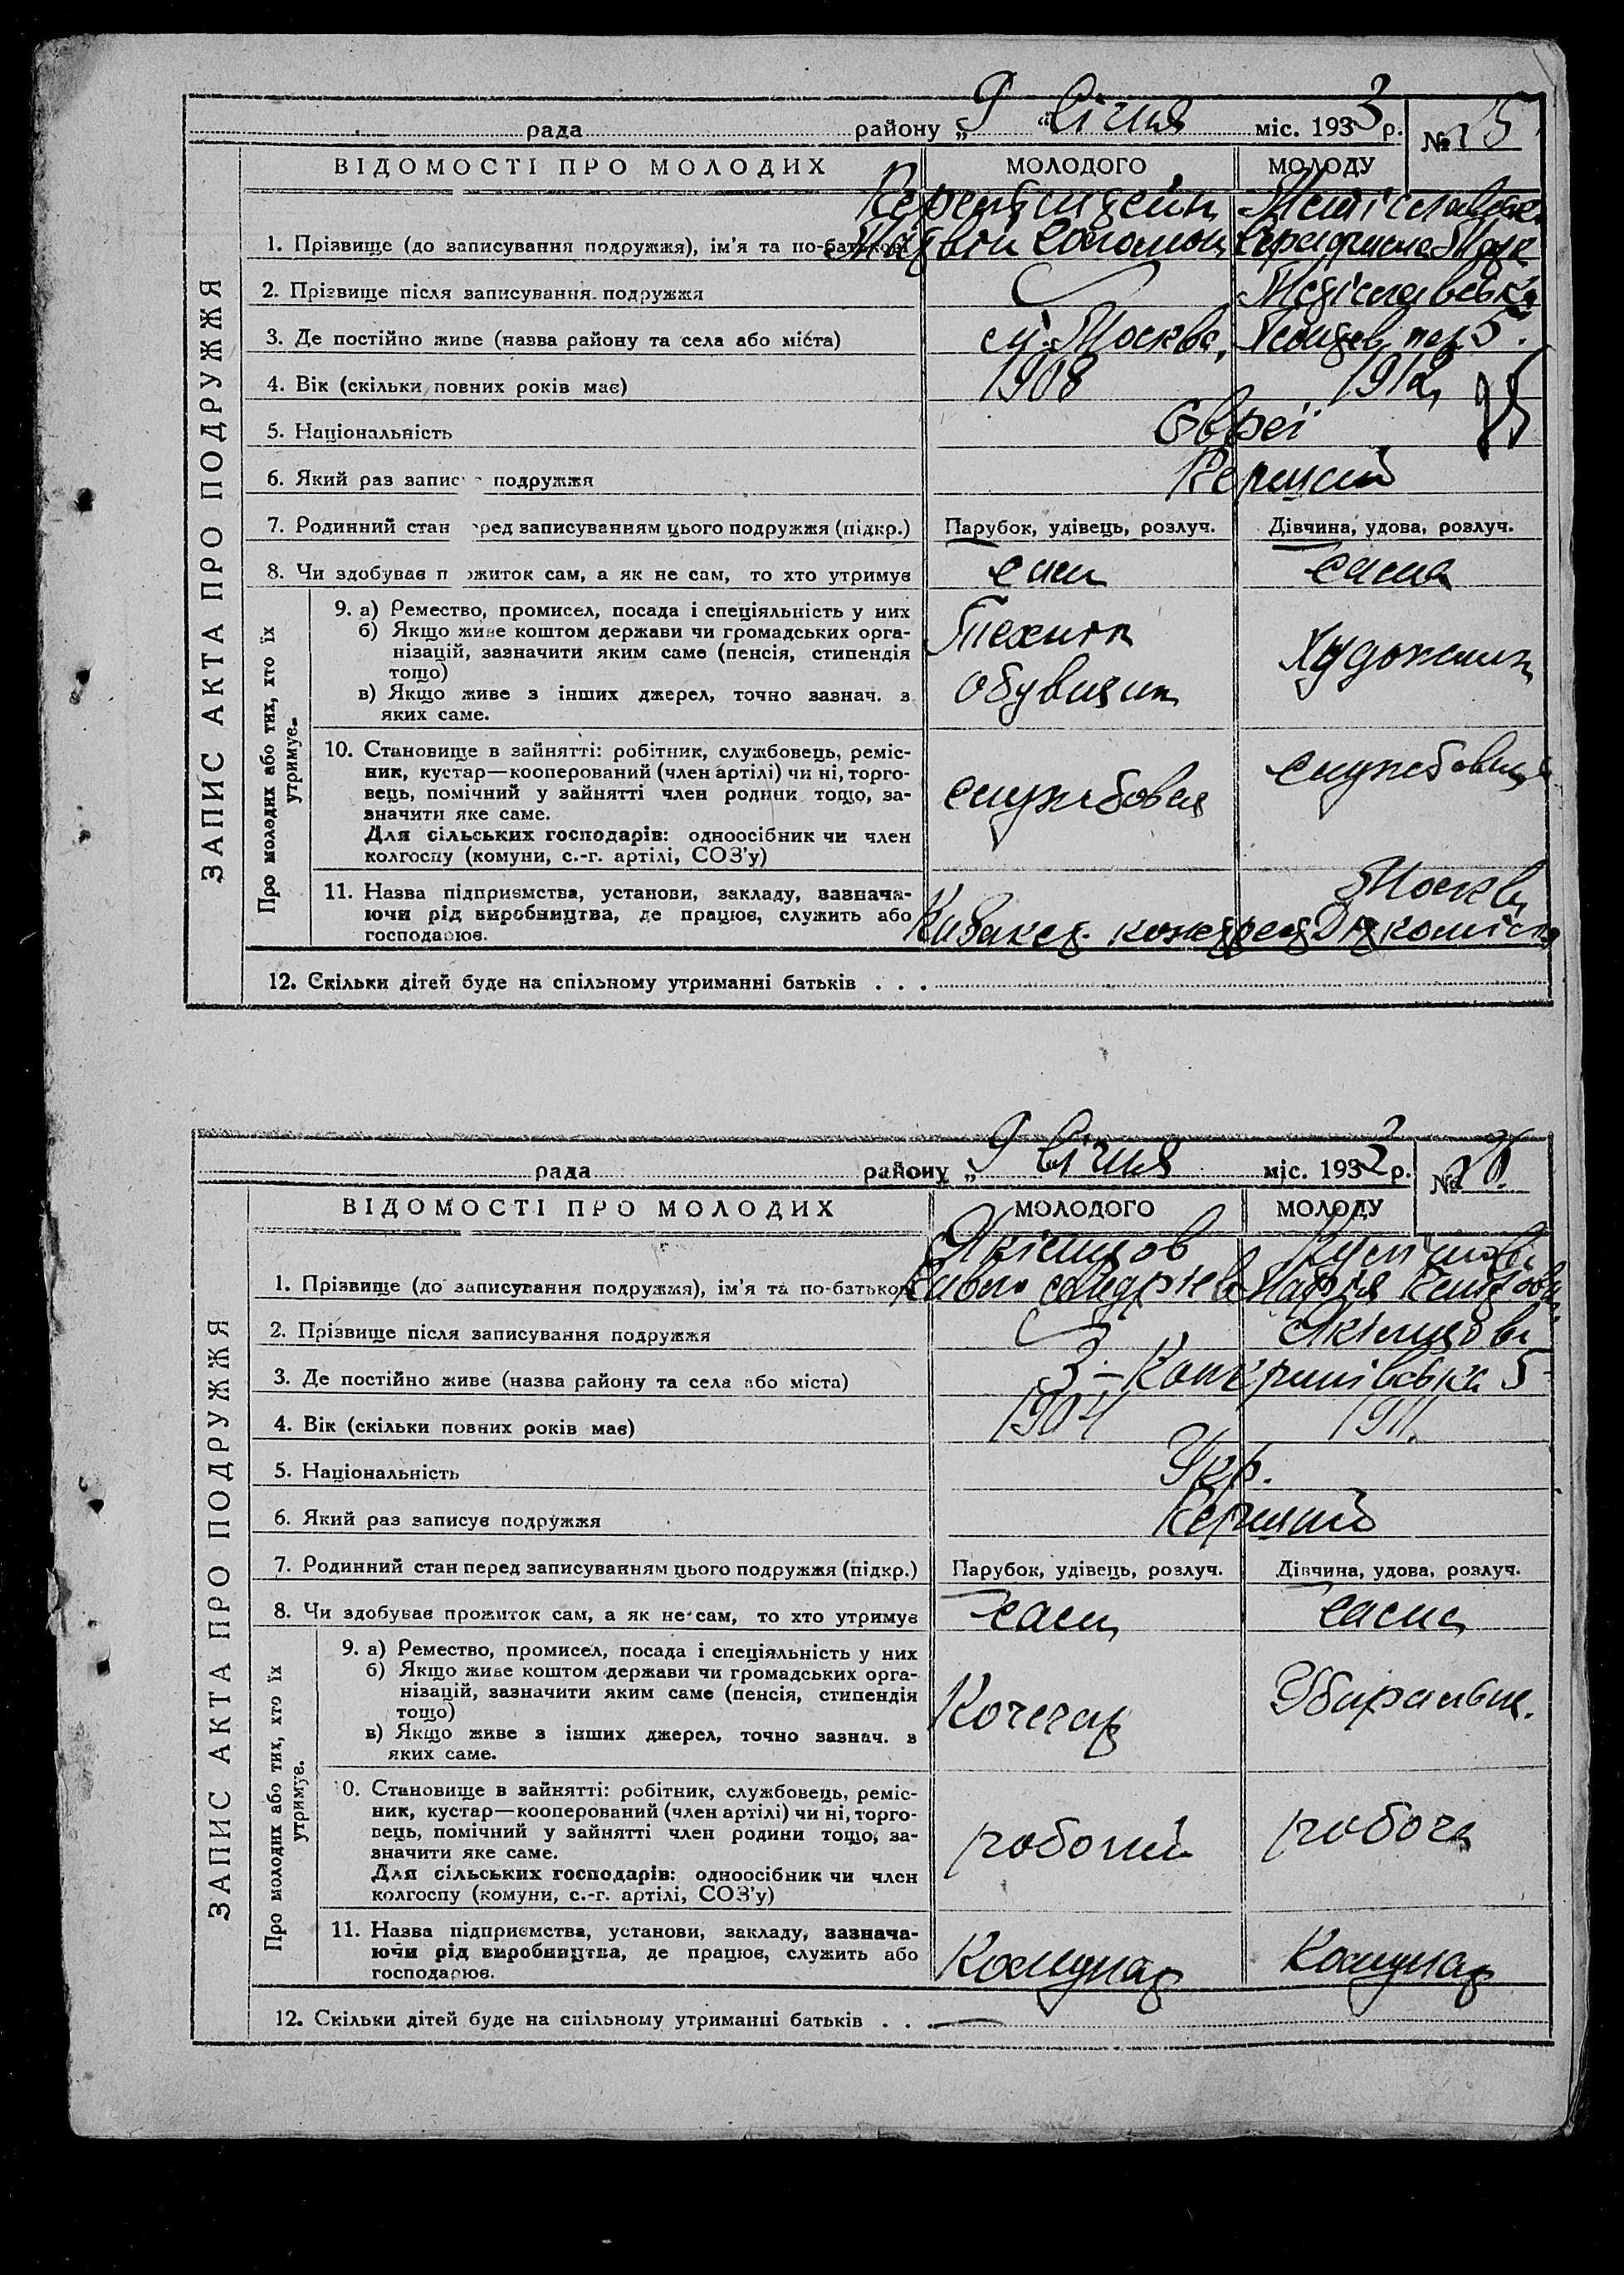 рада району „9 “ Січня міс. 1933 р. № 25
ЗАПИС АКТА ПРО ПОДРУЖЖЯ
ВІДОМОСТІ ПРО МОЛОДИХ МОЛОДОГО МОЛОДУ
1. Прізвище (до записування подружжя), ім'я та по-батькові
2. Прізвище після записування подружжя
3. Де постійно живе (назва району та села або міста) м. Москва, 5.
4. Вік (скільки повних років має) 1908 1912
5. Національність Євреї
6. Який раз запис подружжя Перший
7. Родинний стан перед записуванням цього подружжя (підкр.) Парубок, удівець, розлуч. Дівчина, удова, розлуч.
8. Чи здобуває прожиток сам, а як не сам, то хто утримує сам сама
Про молодих або тих, хто їх утримує.
9. а) Ремество, промисел, посада і спеціяльність у них
б) Якщо живе коштом держави чи громадських орга-
нізацій, зазначити яким саме (пенсія, стипендія
тощо)
в) Якщо живе з інших джерел, точно зазнач. з
яких саме.
Технік
обувщик
Художник
10. Становище в зайнятті: робітник, службовець, реміс-
ник, кустар—кооперований (член артілі) чи ні, торго-
вець, помічний у зайнятті член родини тощо, за-
значити яке саме.
Для сільських господарів: одноосібник чи член
колгоспу (комуни, с.-г. артілі, СОЗ'у)
службовец
службовиця
11. Назва підприємства, установи, закладу, зазнача-
ючи рід виробництва, де працює, служить або
господарює.
Москва
12. Скільки дітей буде на спільному утриманні батьків . . .
рада району „9 Січня міс. 1933 р. № 26
ЗАПИС АКТА ПРО ПОДРУЖЖЯ
ВІДОМОСТІ ПРО МОЛОДИХ МОЛОДОГО МОЛОДУ
Якімцов
1. Прізвище (до записування подружжя), ім'я та по-батькові Марія
2. Прізвище після записування подружжя Якімцова
3. Де постійно живе (назва району та села або міста) 5
4. Вік (скільки повних років має) 1904 1911.
5. Національність Укр.
6. Який раз записує подружжя Перший
7. Родинний стан перед записуванням цього подружжя (підкр.) Парубок, удівець, розлуч. Дівчина, удова, розлуч.
8. Чи здобуває прожиток сам, а як не сам, то хто утримує сам сама
Про молодих або тих, хто їх утримує.
9. а) Ремество, промисел, посада і спеціяльність у них
б) Якщо живе коштом держави чи громадських орга-
нізацій, зазначити яким саме (пенсія, стипендія
тощо)
в) Якщо живе з інших джерел, точно зазнач. з
яких саме.
Кочегар
10. Становище в зайнятті: робітник, службовець, реміс-
ник, кустар—кооперований (член артілі) чи ні, торго-
вець, помічний у зайнятті член родини тощо, за-
значити яке саме.
Для сільських господарів: одноосібник чи член
колгоспу (комуни, с.-г. артілі, СОЗ'у)
робочий
робоча
11. Назва підприємства, установи, закладу, зазнача-
ючи рід виробництва, де працює, служить або
господарює.
Комунар
Комунар
12. Скільки дітей буде на спільному утриманні батьків . . . —